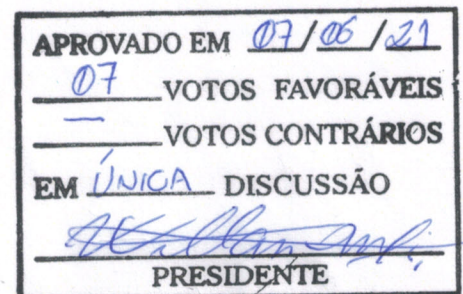 APROVADO EM 07/06/21
07 VOTOS FAVORÁVEIS
— VOTOS CONTRÁRIOS
EM ÚNICA DISCUSSÃO
PRESIDENTE